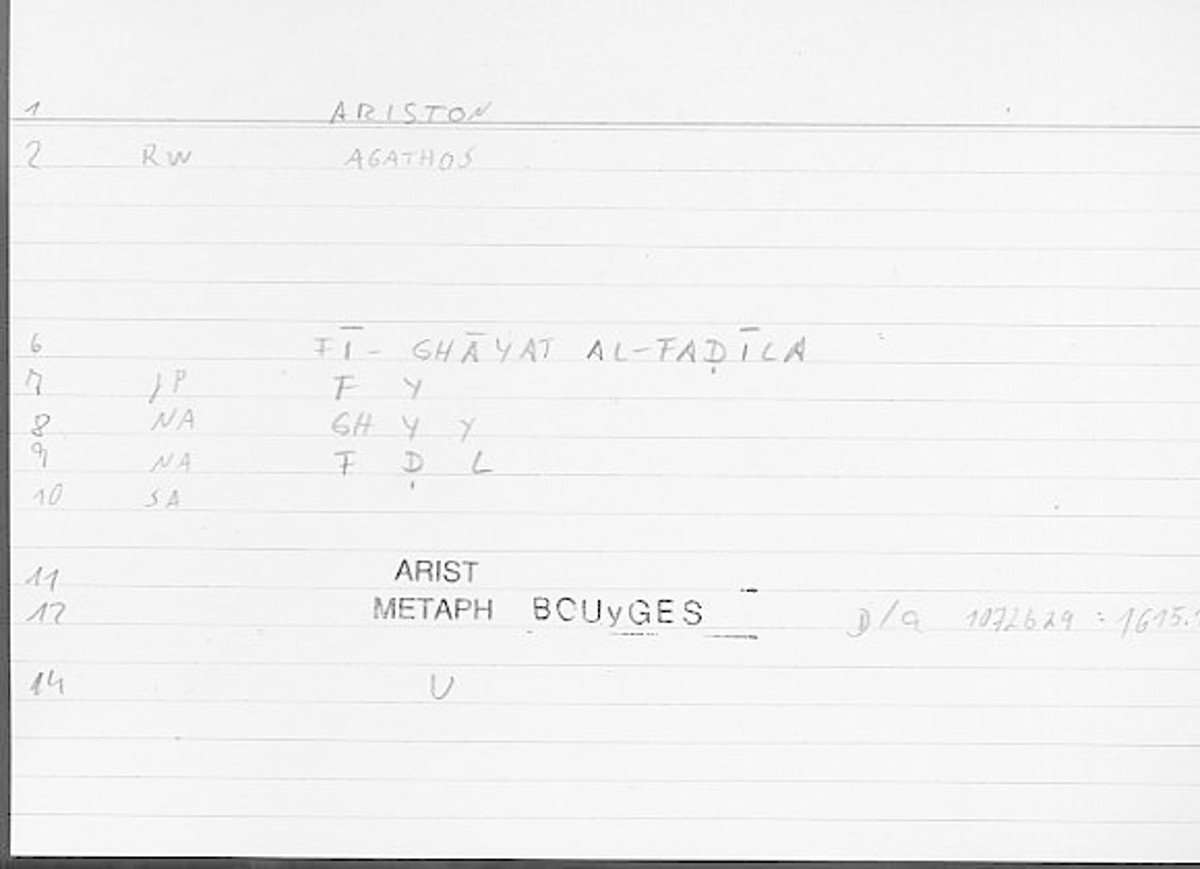 1 ARISTON
2 RW AGATHOS
6 FĪ- GHĀYAT AL-FAḌĪLA
7 JP F Y
8 NA GH Y Y
9 NA F Ḍ L
10 SA
11 ARIST
12 METAPH BOUyGES D/a 1072b29 = 1615.
14 U